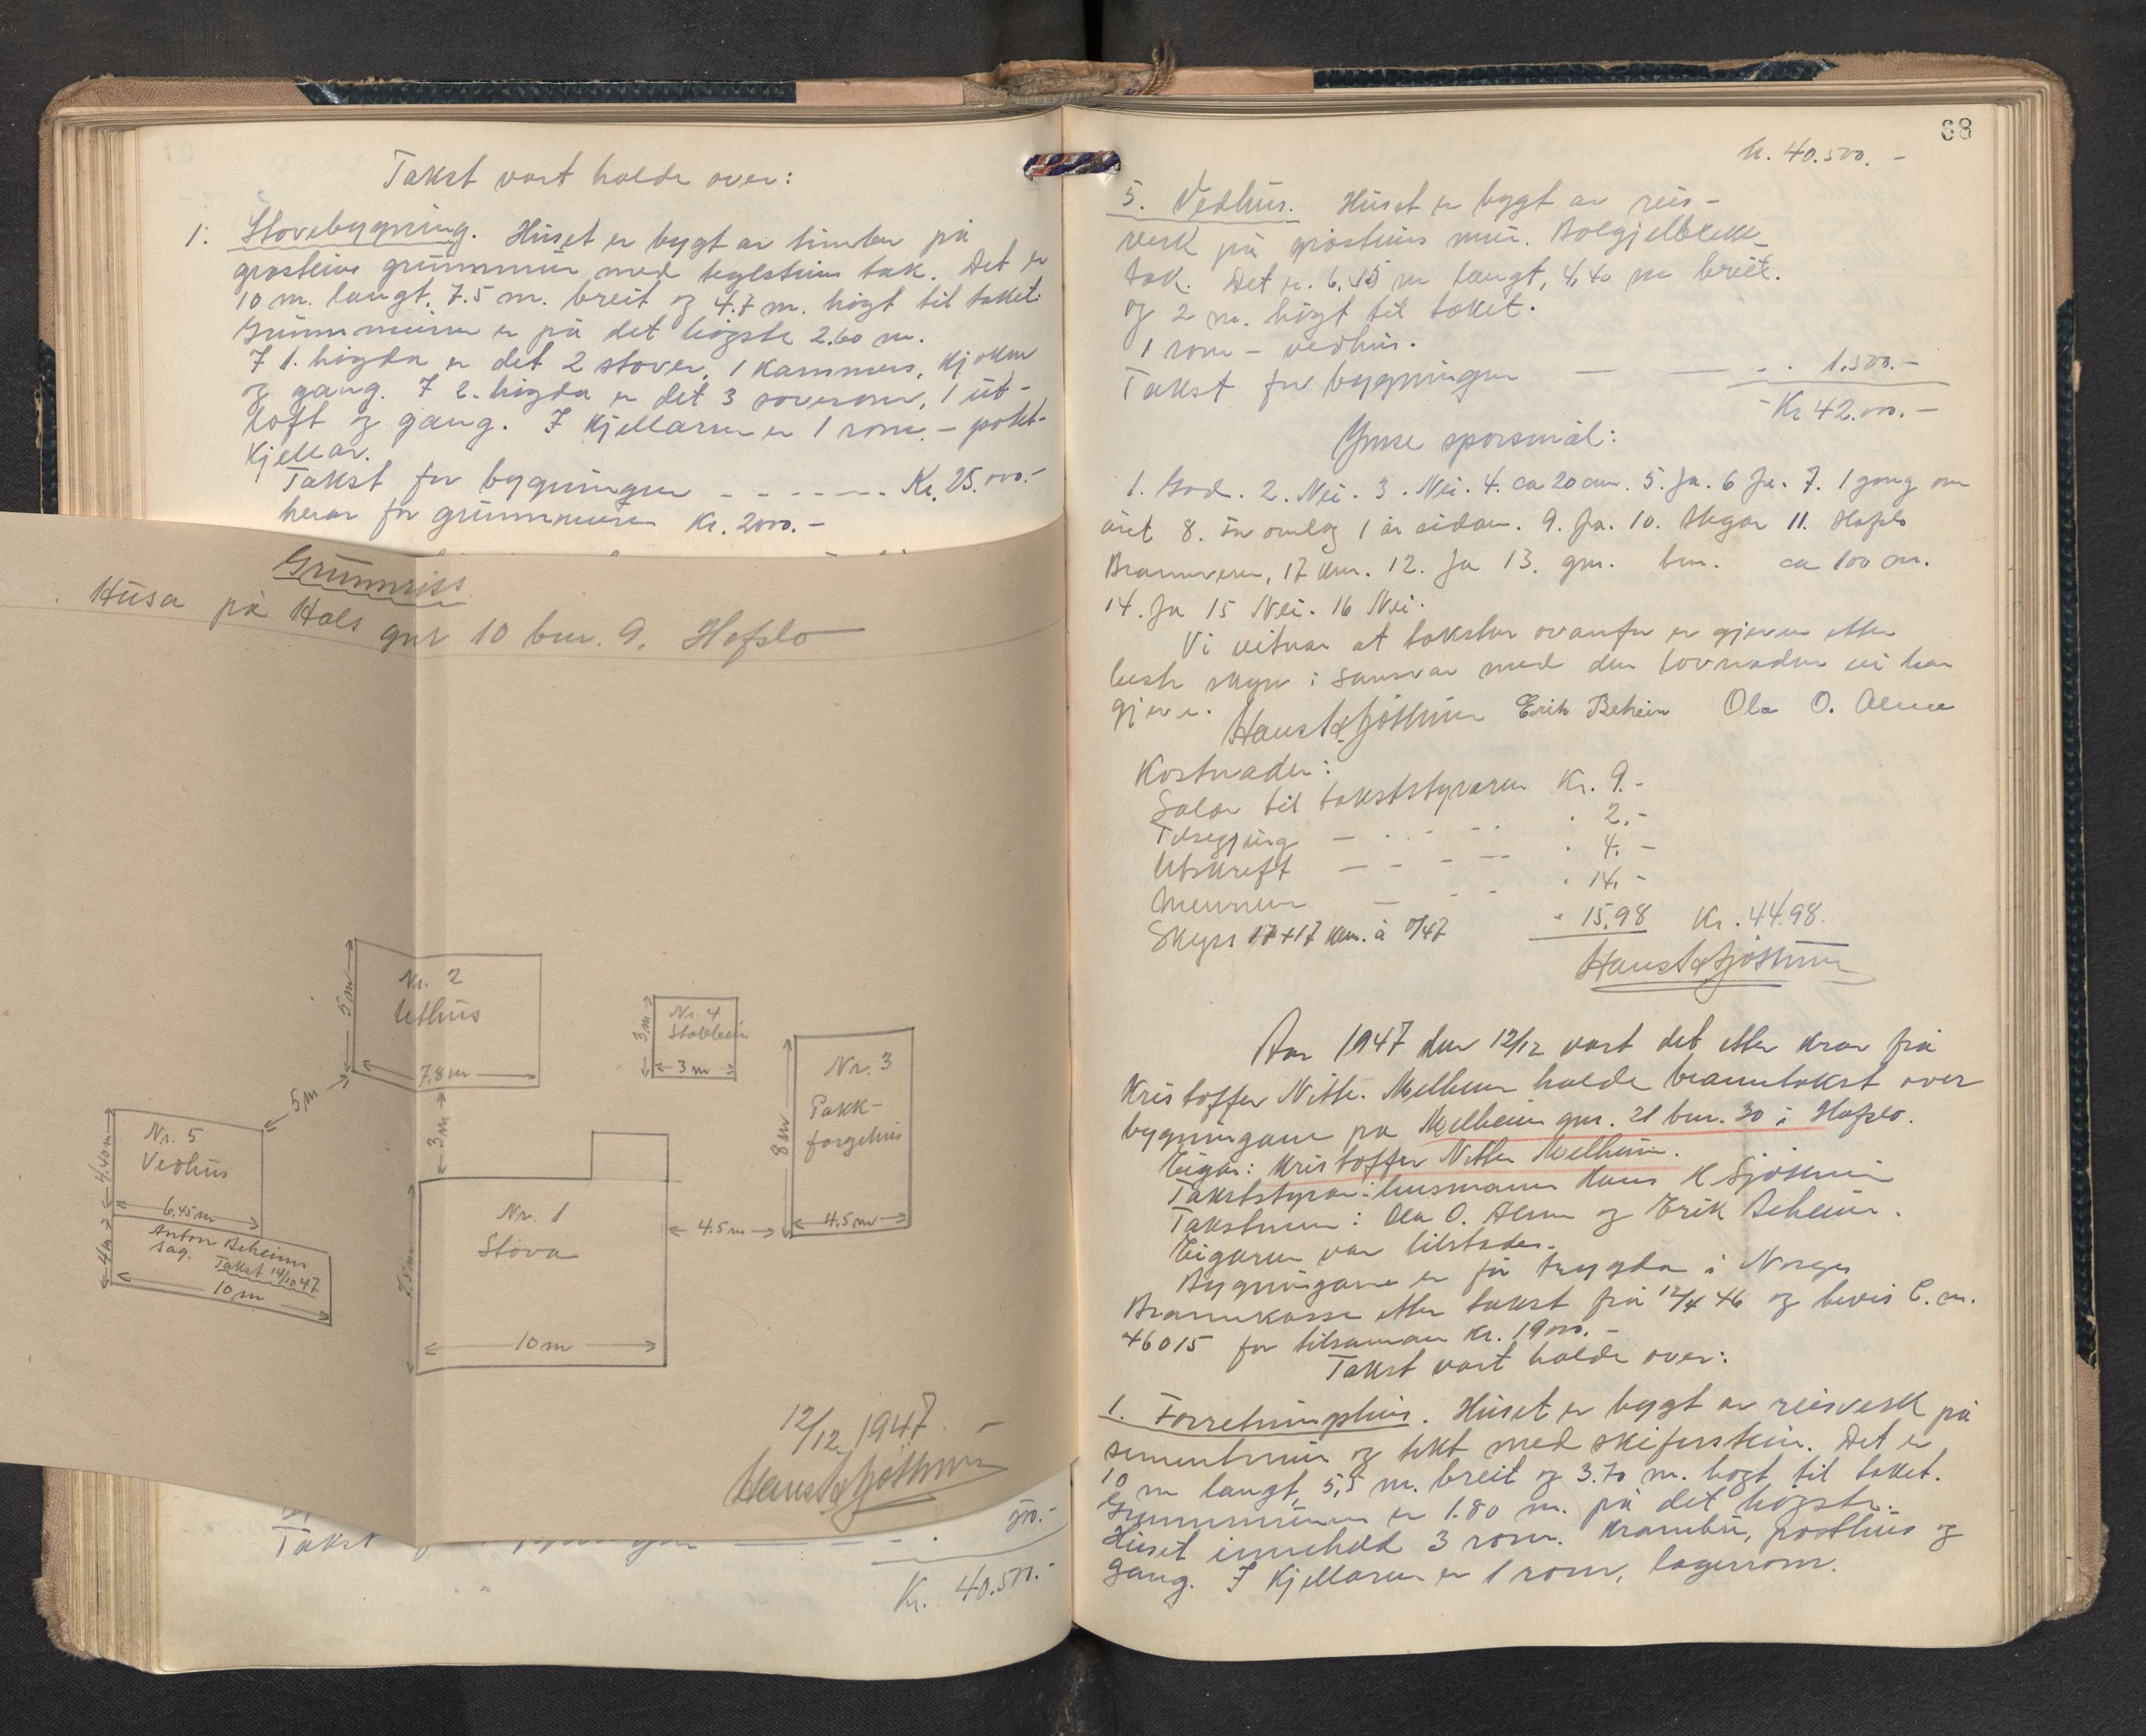 Takst vart halde over:
1. Stovebygning. Huset er bygt av timber på
gråsteins grunnmur med teglsteins tak. Det er
10 m. langt, 7.5 m. breit og 4.7 m. högt til taket.
Grunnmuren er på det högste 2.60 m.
I 1. högda er det 2 stover, 1 kammers, kjöken
og gang. I 2. högda er det 3 soverom, 1 ut-
loft og gang. I kjellaren er 1 rom - potet-
kjellar.
Takst for bygningen - - - - - - - Kr. 25.000.-
herav for grunnmuren Kr. 2000.-
Grunnriss
Husa på Hals gnr 10 bnr. 9. Hafslo
Nr. 2
Uthus
5 m
7.8 m
Nr. 4
Stabbur
3 m
3 m
Nr. 3
Pakk-
forgehus
8 m
4.5 m
5 m
3 m
Nr. 5
Vedhus
4.40 m
6.45 m
Anton Beheims
sag.
Takst 14/10 47
4 m
10 m
Nr. 1
Stova
7.5 m
10 m
4.5 m
12/12 1947.
Hans K Sjöthun
Takst
500.-
Kr. 40.500.-
68
Kr. 40.500.-
5. Vedhus. Huset er bygt av reis-
verk på gråsteins mur. Bølgjeblekk-
tak. Det er 6,45 m langt, 4,40 m breit.
og 2 m. högt til taket.
1 rom - vedhus.
Takst for bygningen — — - . 1.500.-
Kr 42.000.-
Ymse spørsmål:
1. God. 2. Nei. 3. Nei. 4. ca 20 cm. 5. Ja. 6 Ja. 7. 1 gong om
året 8. For omlag 1 år sidan. 9. Ja. 10. Skogar 11. Hafslo
Brannvern, 17 km. 12. Ja 13. gnr. bnr. ca 100 m.
14. Ja 15 Nei. 16 Nei.
Vi vitnar at taksten ovanfor er gjeven etter
beste skyn i samsvar med den lovnaden vi har
gjeve. Hans K Sjöthun Erik Beheim Ola O. Alme
Kostnader:
Salær til takststyraren Kr. 9.-
Tilsegjing — - - - - - . 2.-
Utskrift — - - - — . 4.-
Mennene — - - . 14.-
Skyss 17+17 km. à 0/47 - 15,98 Kr. 44.98.
Hans K Sjöthun
Aar 1947 den 12/12 vart det etter krav frå
Kristoffer Nitter Melheim halde branntakst over
bygningane på Melheim gnr. 21 bnr. 30 i Hafslo.
Eigar: Kristoffer Nitter Melheim.
Takststyrar: lensmann Hans K Sjöthun
Takstmenn: Ola O. Alme og Erik Beheim.
Eigaren var tilstades.
Bygningane er för trygda i Norges
Brannkasse etter takst frå 12/4 46 og bevis C. nr.
46015 for tilsaman kr. 19000.-
Takst vart halde over:
1. Forretningshus. Huset er bygt av reisverk på
sementmur og tekt med skiferstein. Det er
10 m langt, 5,5 m. breit og 3.70 m. högt til taket.
Grunnmuren er 1.80 m. på det högste.
Huset inneheld 3 rom. Krambu, posthus og
gang. I kjellaren er 1 rom, lagerrom.